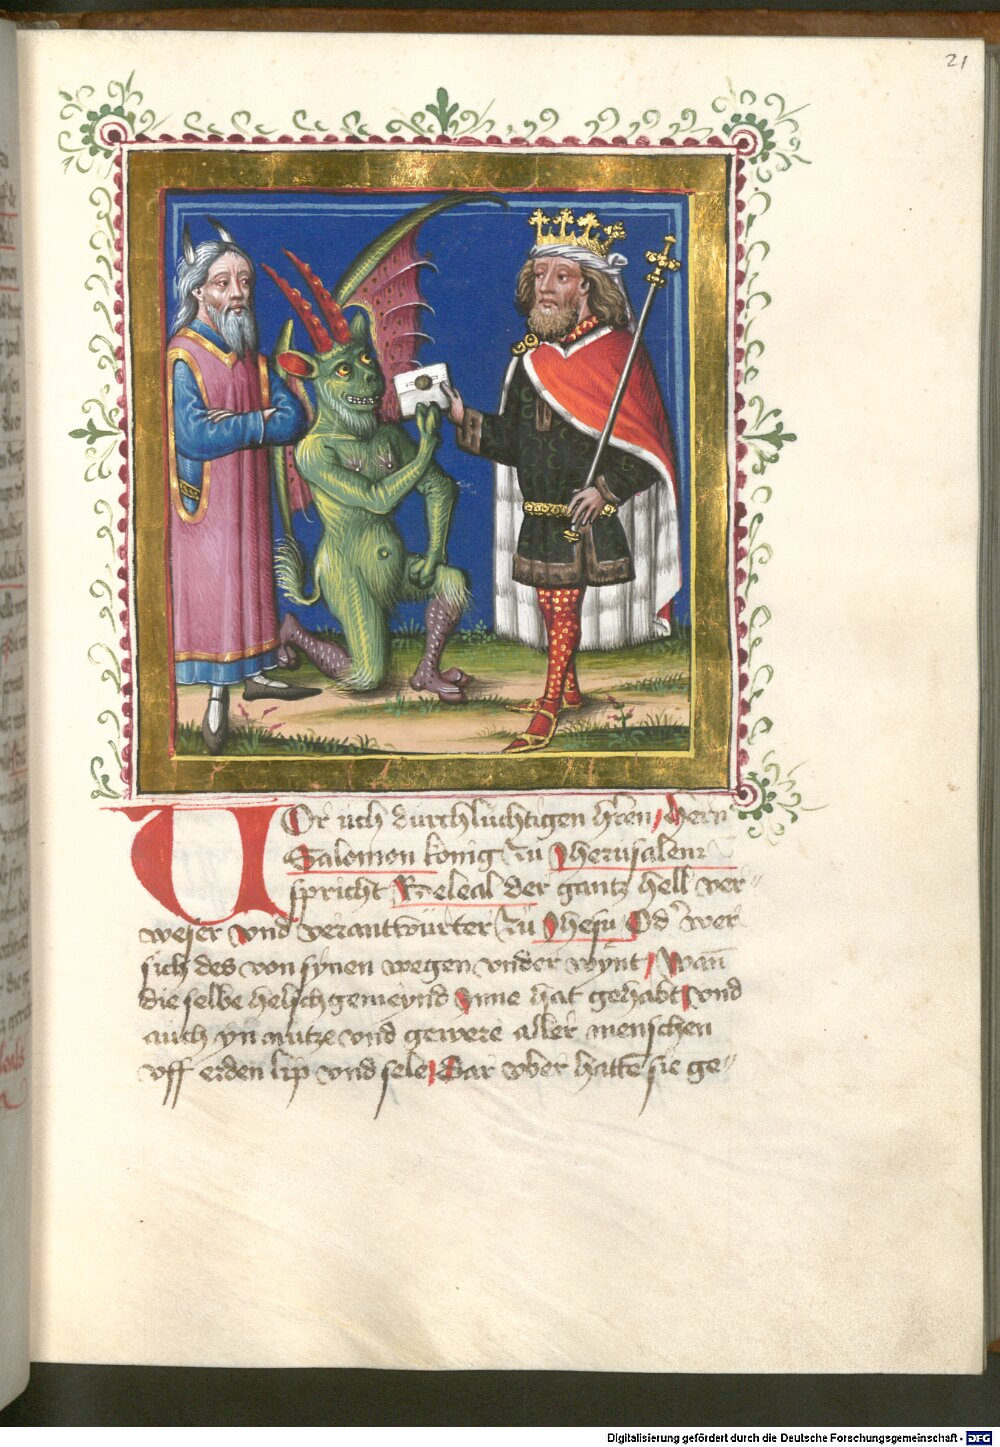 21
Vor uch durchluchtigen hren / Hern
Salomon konig zu Jherusalem
spricht Beleal der gantz hell ver=
weser vnd verantwurter zu Jhesu Od wer
sich des von synen wegen vnder wynt / Wan
die selbe helsch gemeynd Inne hat gehabt vnd
auch yn nutze vnd gewere aller menschen
vff erden lip vnd sele / Dar vber hatte sie ge=
Digitalisierung gefördert durch die Deutsche Forschungsgemeinschaft - DFG